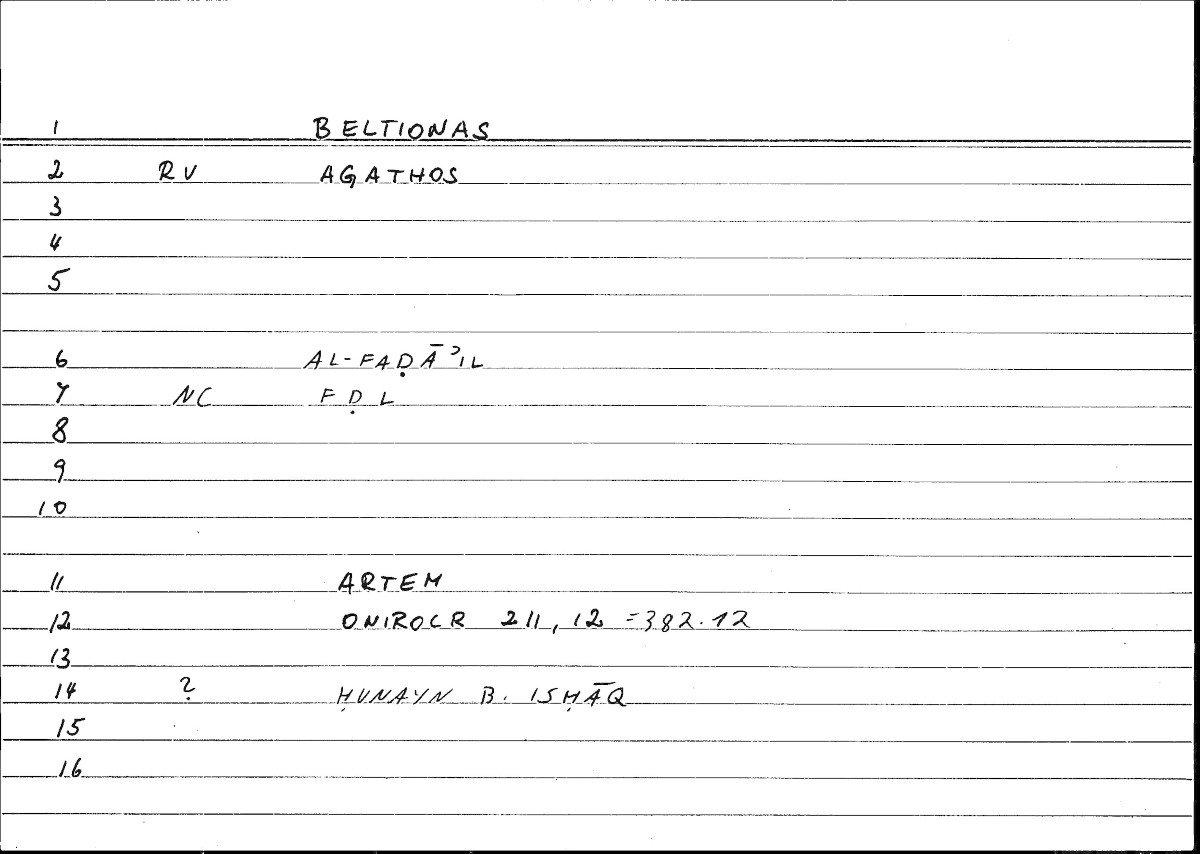 1 BELTIONAS
2 RV AGATHOS
3
4
5
6 AL-FAḌĀʾIL
7 NC FḌL
8
9
10
11 ARTEM
12 ONIROCR 211, 12 =382.12
13
14 ? ḤUNAYN B. ISḤĀQ
15
16